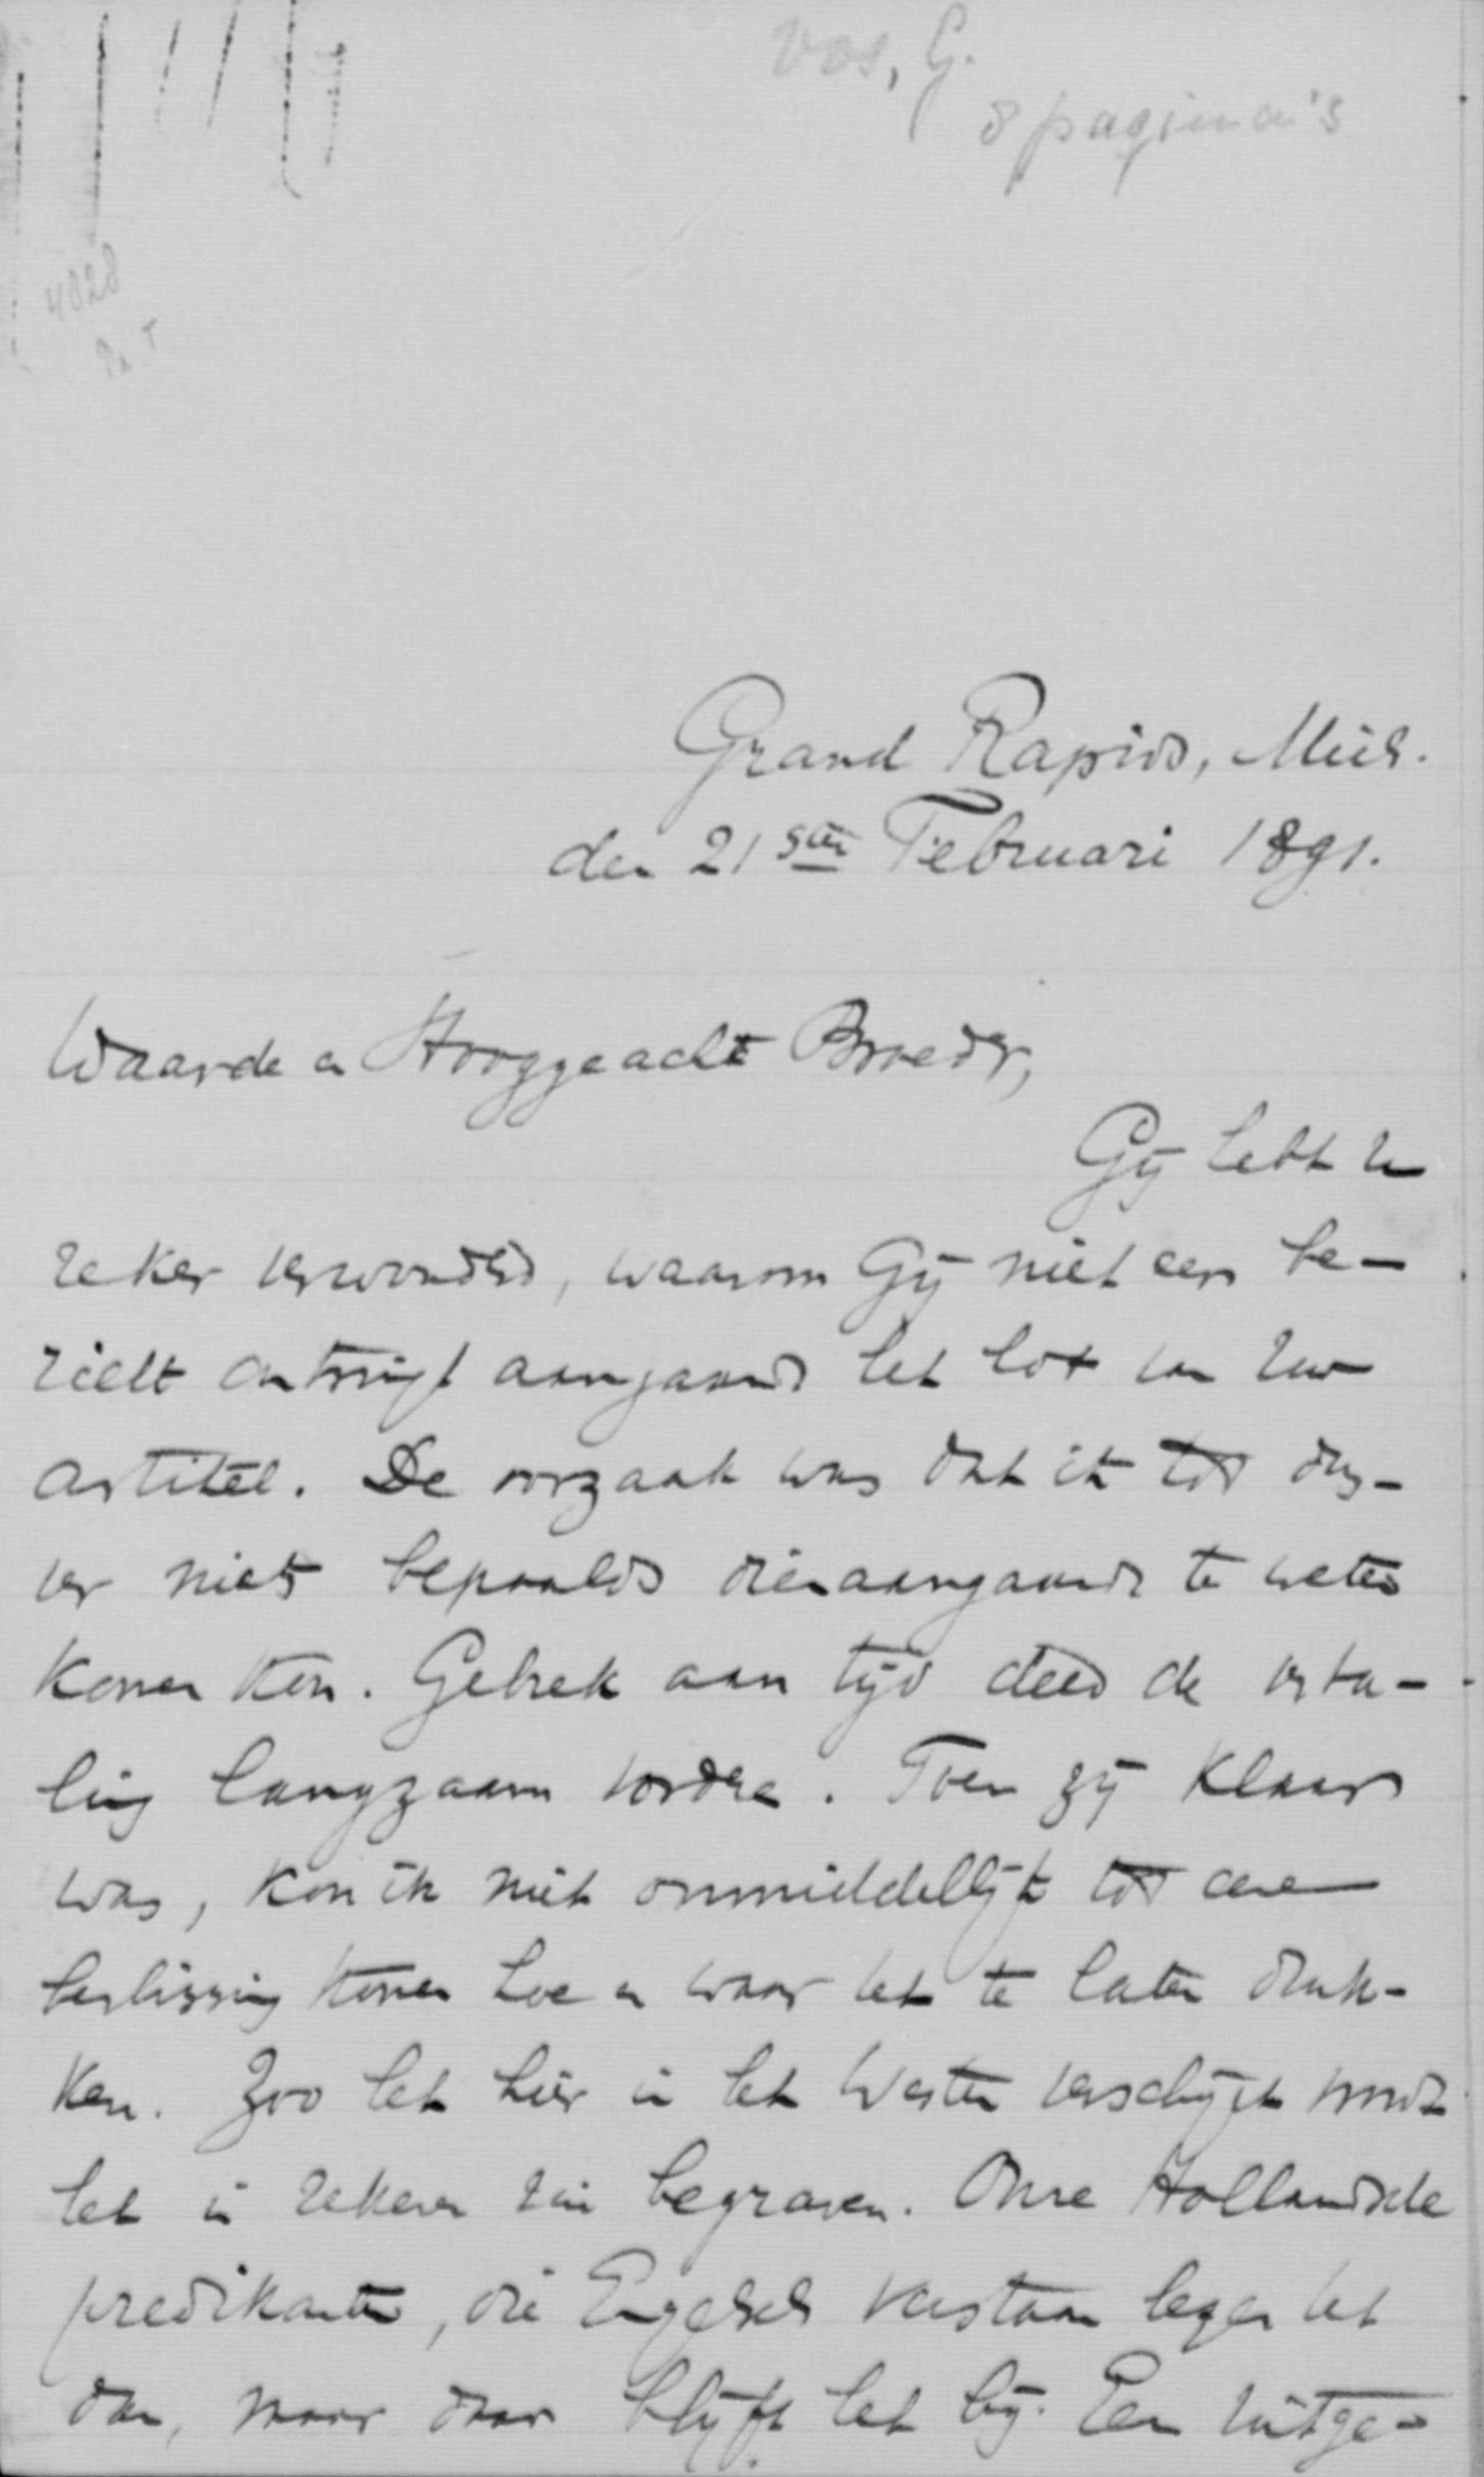 Vos, G.
8 pagina's
4028
Grand Rapids, Mich.
den 21sten Februari 1891.
Waarde en Hooggeachte Broeder,
Gij hebt U
zeker verwonderd, waarom Gij niet een be-
richt ontvingt aangaande het lot van Uw
artikel. De oorzaak was dat ik tot dus-
ver niets bepaalds dienaangaande te weten
komen kon. Gebrek aan tijd deed de verta-
ling langzaam vorderen. Toen zij klaar
was, kon ik niet onmiddellijk tot eene
beslissing komen hoe en waar het te laten druk-
ken. Zoo het hier in het Westen verschijnt wordt
het in zekeren zin begraven. Onze Hollandsche
predikanten, die Engelsch verstaan lezen het
dan, maar daar blijft het bij. Een uitge-